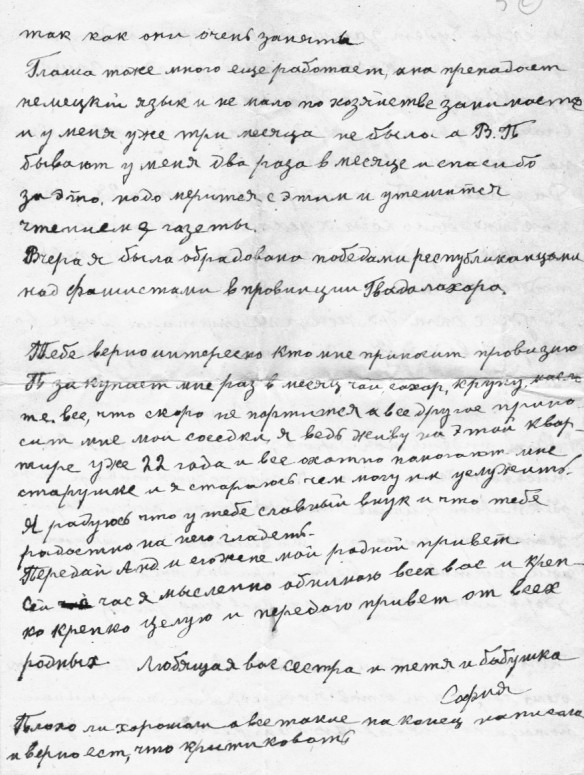 так как они очень заняты
Глаша тоже много еще работает, она преподает
немецкий язык и не мало по хозяйстве занимается
и у меня уже три месяца не была а В. П
бывают у меня два раза в месяце и спасибо
за это, надо мерится с этим и утешится
чтением газеты.
Вчера я была обрадована победами республиканцами
над фашистами в провинции Гвадалахара.
Тебе верно интересно кто мне приносит провизию
П закупает мне раз в месяц чай сахар, крупу,
т.е. все, что скоро не портится а все другое прино
сит мне мои соседки, я ведь живу на этой квар-
тире уже 22 года и все охотно помогают мне
старушке и я стараюсь чем могу им услужить.
Я радуюсь что у тебе славный внук и что тебе
радостно на него гладеть.
Передай Анд и его жене мой родной привет
Сей час я мысленно обнимаю всех вас и креп-
ко крепко целую и передаю привет от всех
родных Любящая вас сестра и тетя и бабушка
София
Плохо ли хорошали а все таки на конец написала
и верно ест, что критиковать